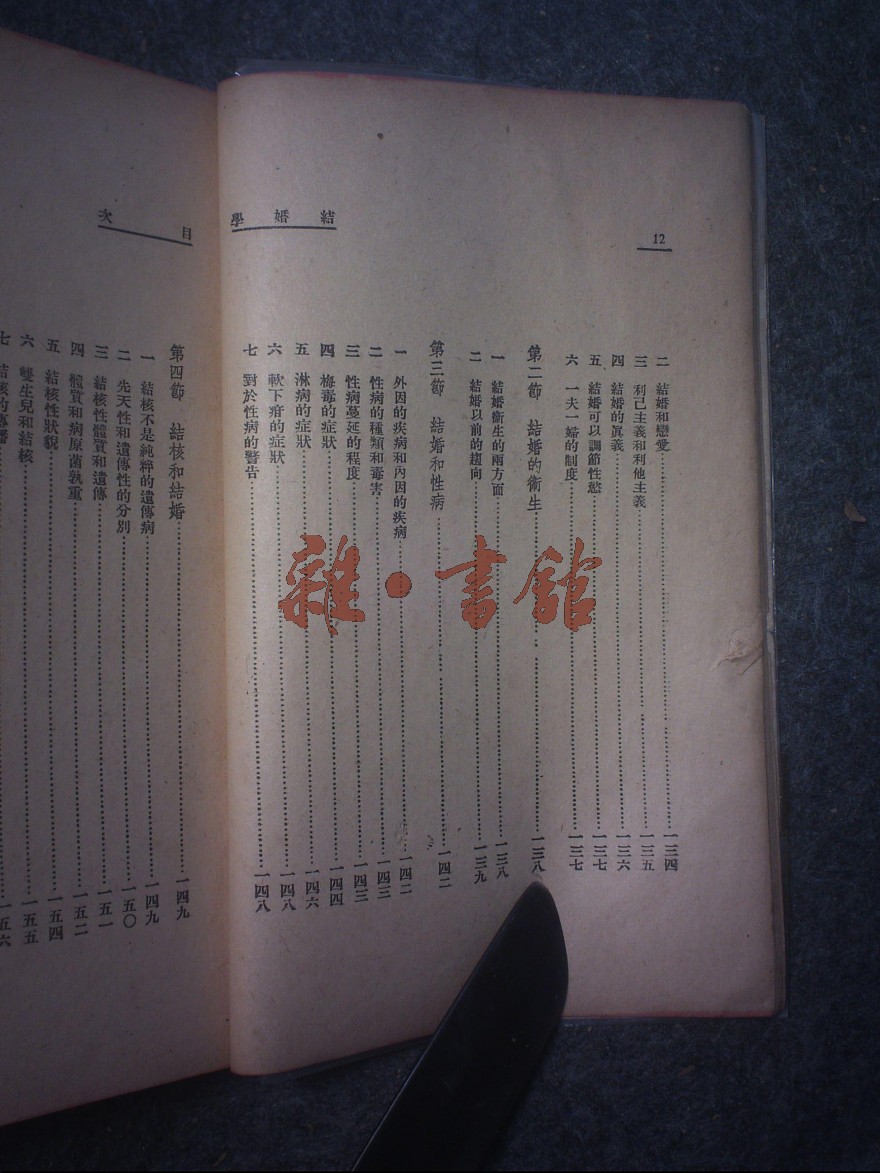 12
結婚學
二 結婚和戀愛……一三四
三 利己主義和利他主義……一三五
四 結婚的眞義……一三六
五 結婚可以調節性慾……一三七
六 一夫一婦的制度……一三七
第二節 結婚的衞生……一三八
一 結婚衞生的兩方面……一三八
二 結婚以前的趨向……一三九
第三節 結婚和性病……一四二
一 外因的疾病和內因的疾病……一四二
二 性病的種類和毒害……一四三
三 性病蔓延的程度……一四三
四 梅毒的症狀……一四四
五 淋病的症狀……一四六
六 軟下疳的症狀……一四八
七 對於性病的警告……一四八
目次
第四節 結核和結婚……一四九
一 結核不是純粹的遺傳病……一四九
二 先天性和遺傳性的分別……一五〇
三 結核性體質和遺傳……一五一
四 體質和病原菌孰重……一五二
五 結核性狀貌……一五四
六 雙生兒和結核……一五五
七 結核的傳播……一五六
雜·書館